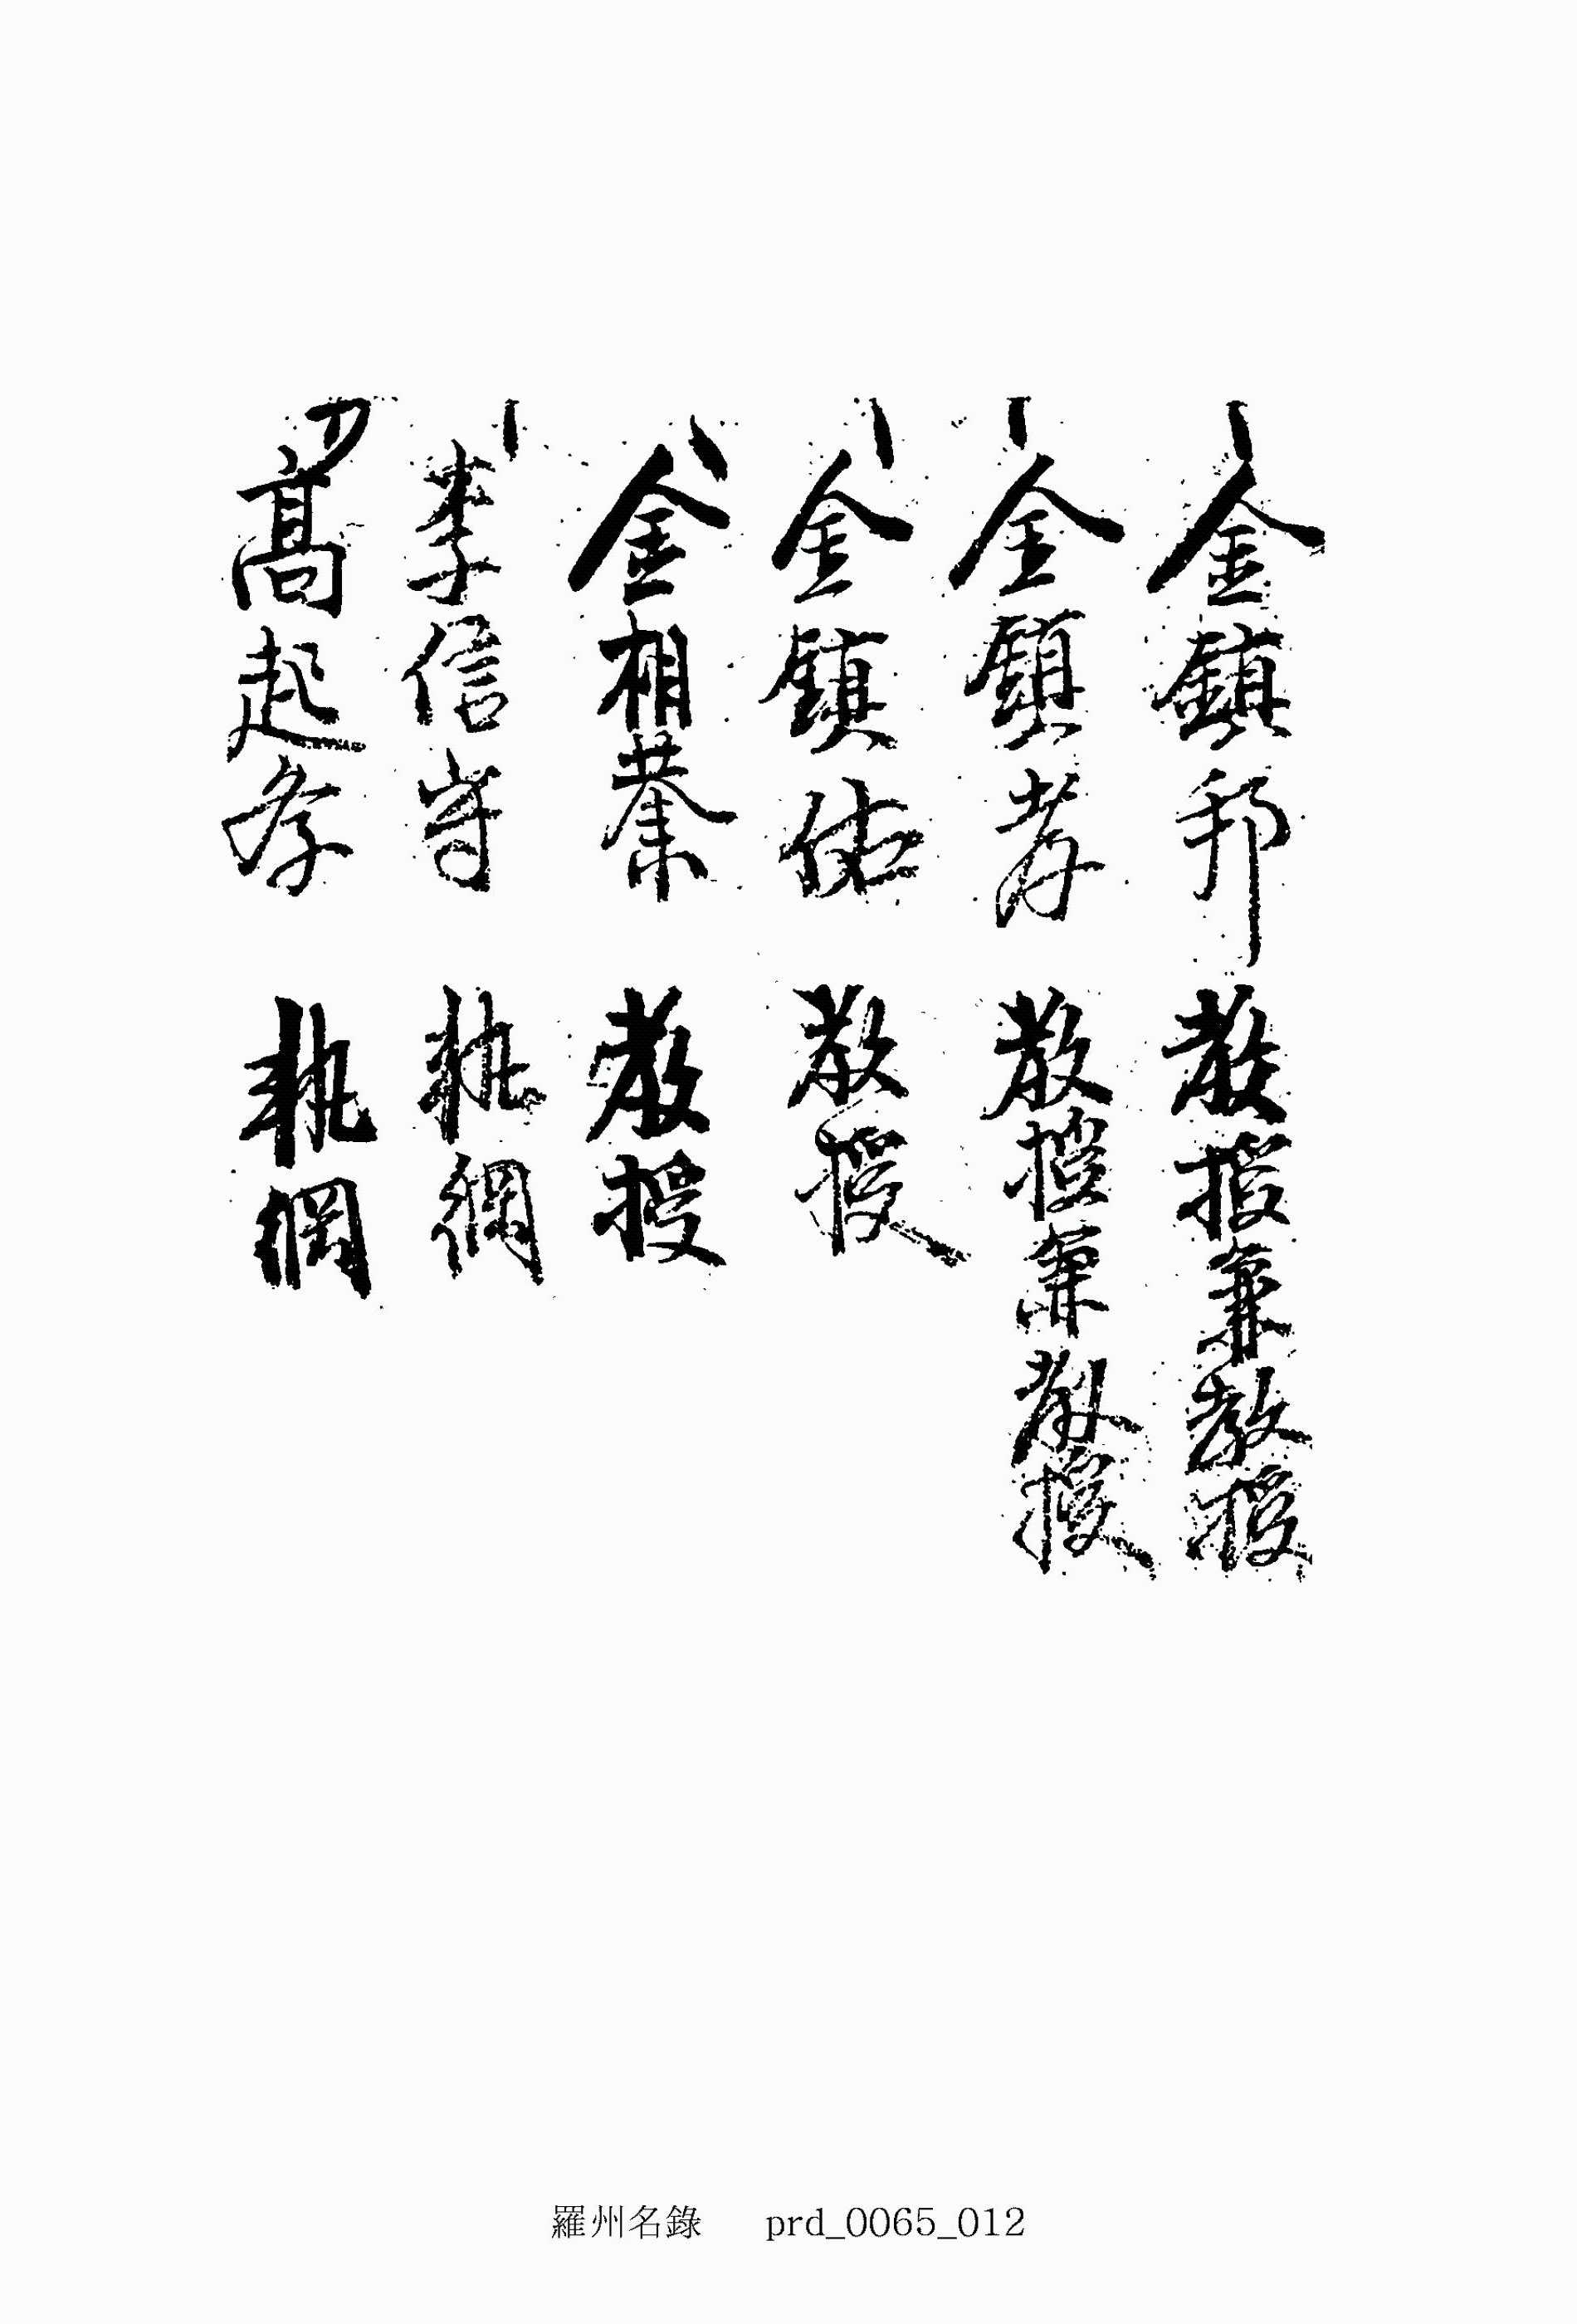 金鎭邦 教授兼教授
金鎭孝 教授兼教授
金鎭佑 教授
金相 教授
李信守 執綱
高起孝 執綱
羅州名錄 prd_0065_012